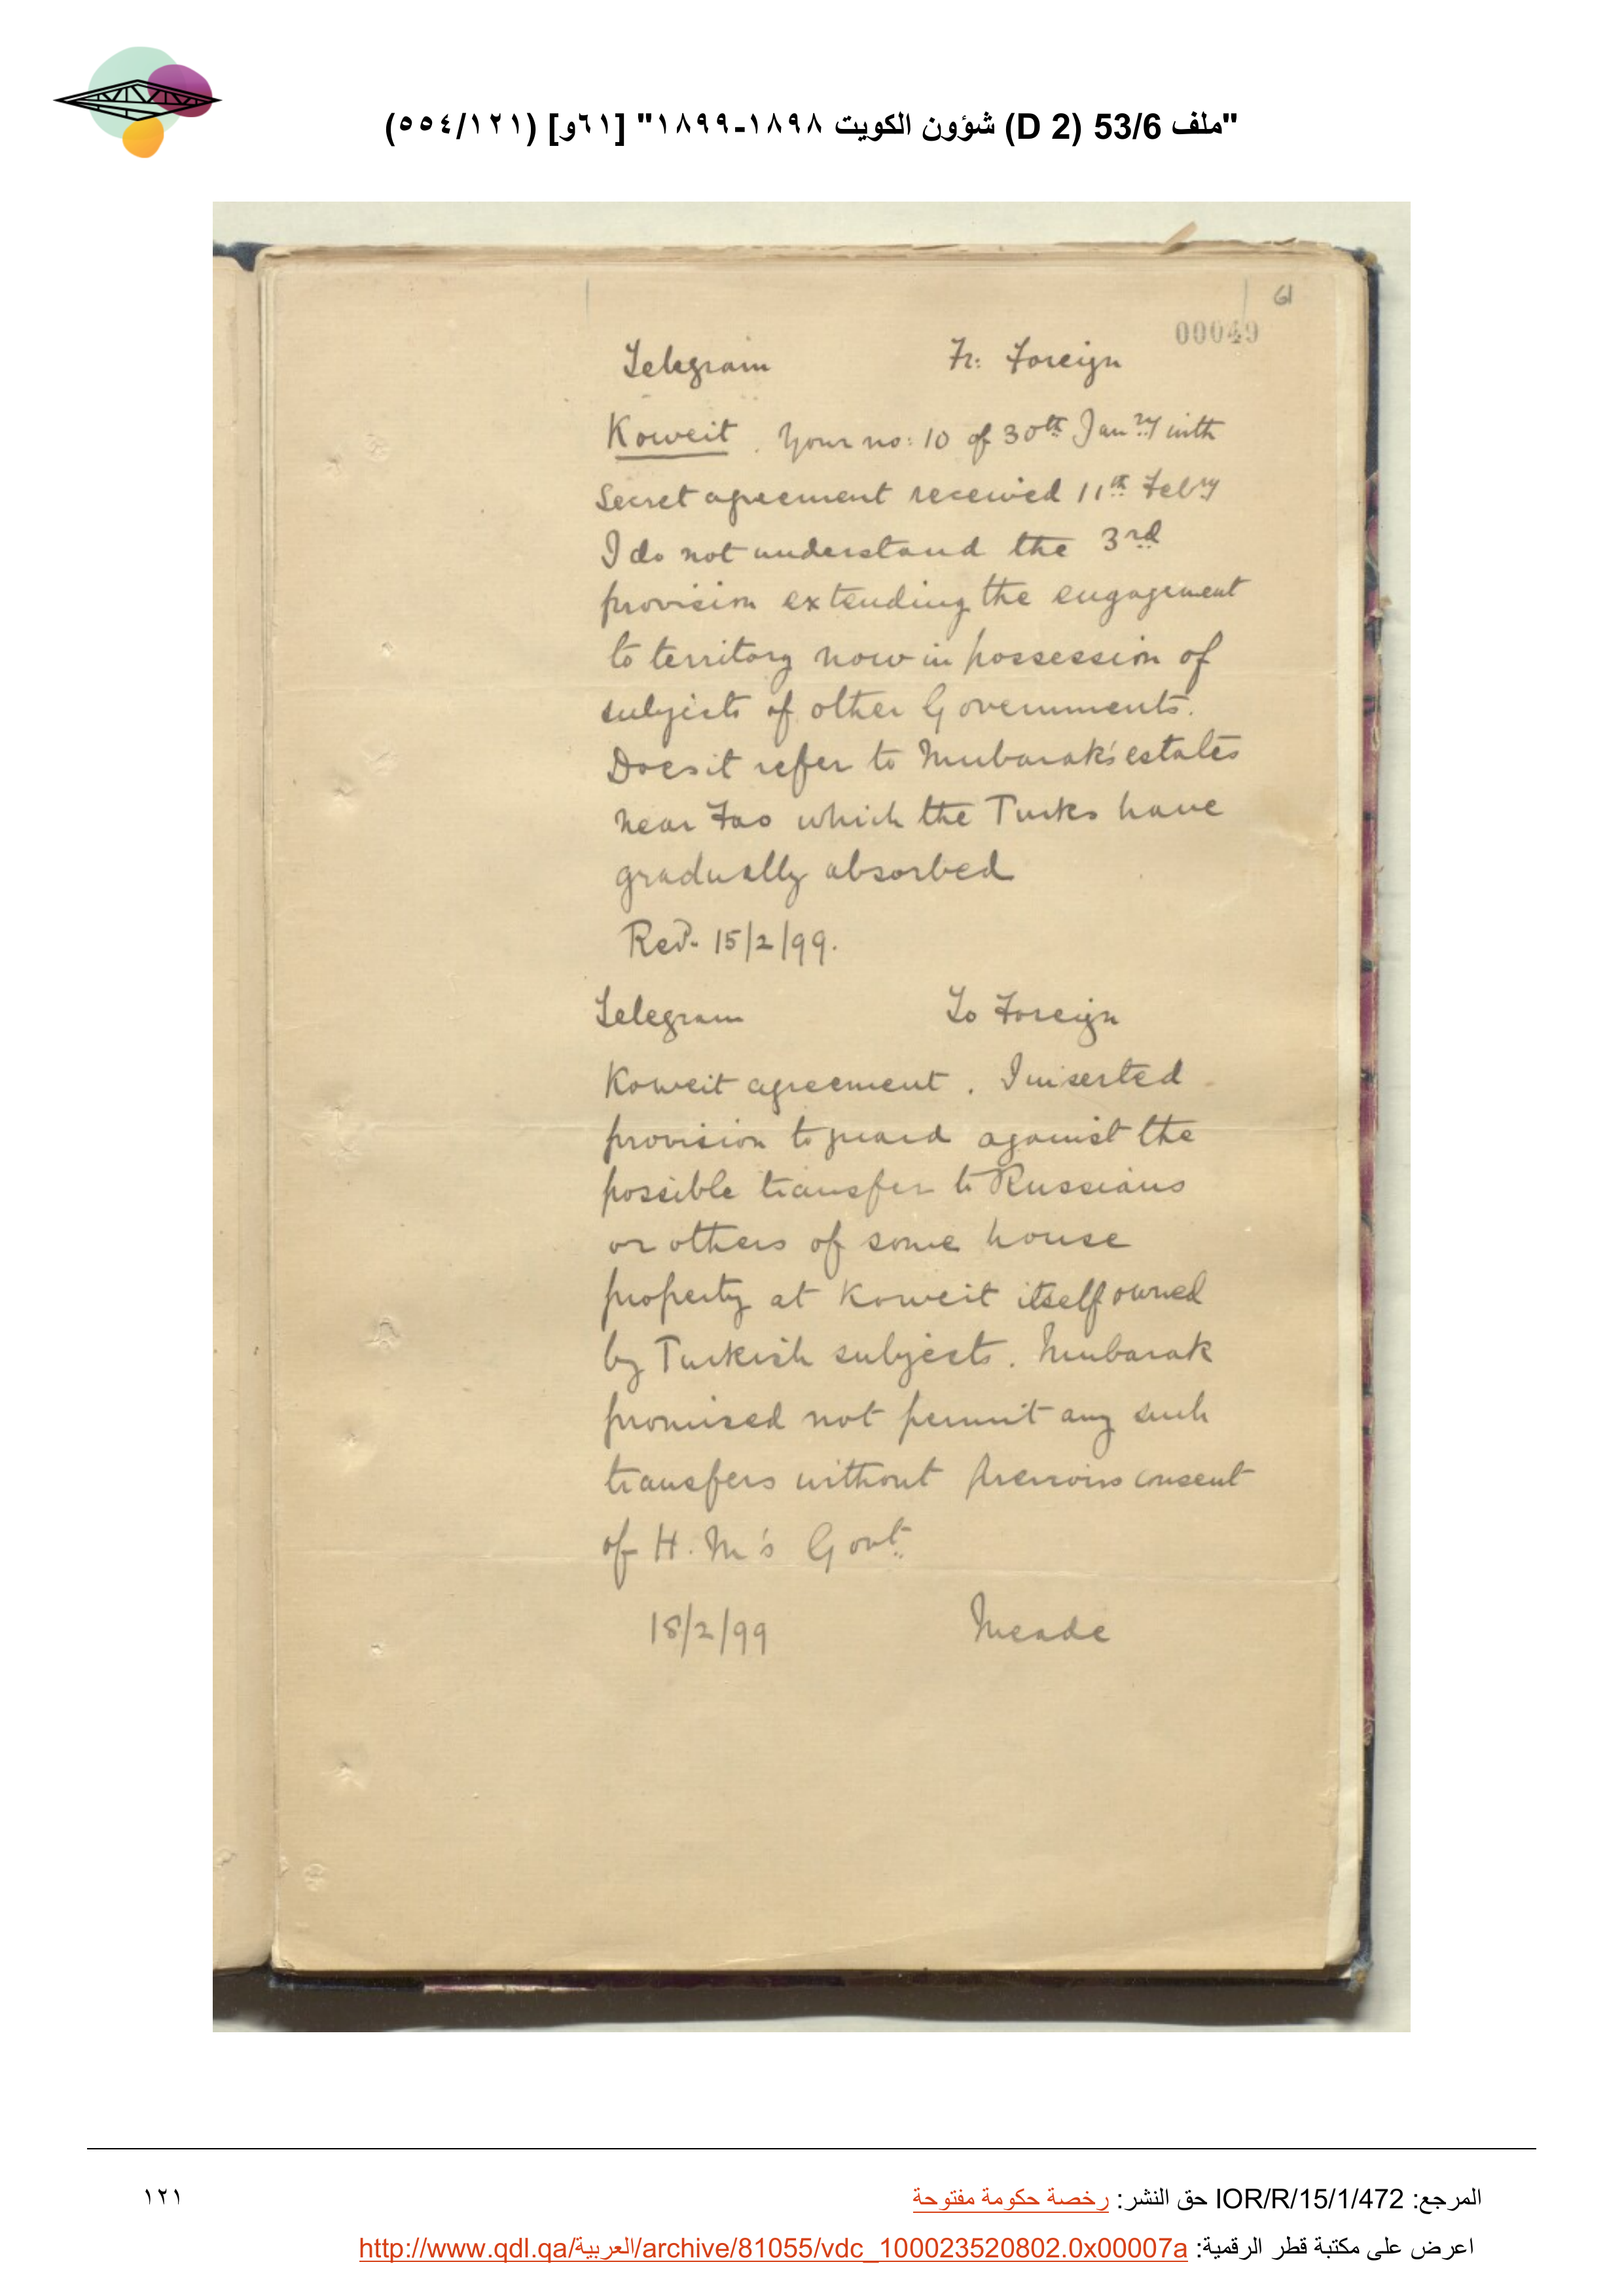 "ملف 53/6 (D 2) شؤون الكويت ١٨٩٨-١٨٩٩" [٦١و] (٥٥٤/١٢١)
61
00049
Telegram Fr: Foreign
Koweit. Your no: 10 of 30th Janry with
Secret agreement received 11th Febry
I do not understand the 3rd
provision extending the engagement
to territory now in possession of
subjects of other Governments.
Does it refer to Mubarak's estates
near Fao which the Turks have
gradually absorbed
Recd. 15/2/99.
Telegram To Foreign
Koweit agreement. I inserted
provision to guard against the
possible transfer to Russians
or others of some house
property at Koweit itself owned
by Turkish subjects. Mubarak
promised not permit any such
transfers without previous consent
of H.M's Govt.
18/2/99 Meade
المرجع: IOR/R/15/1/472 حق النشر: رخصة حكومة مفتوحة
١٢١
اعرض على مكتبة قطر الرقمية: http://www.qdl.qa/العربية/archive/81055/vdc_100023520802.0x00007a